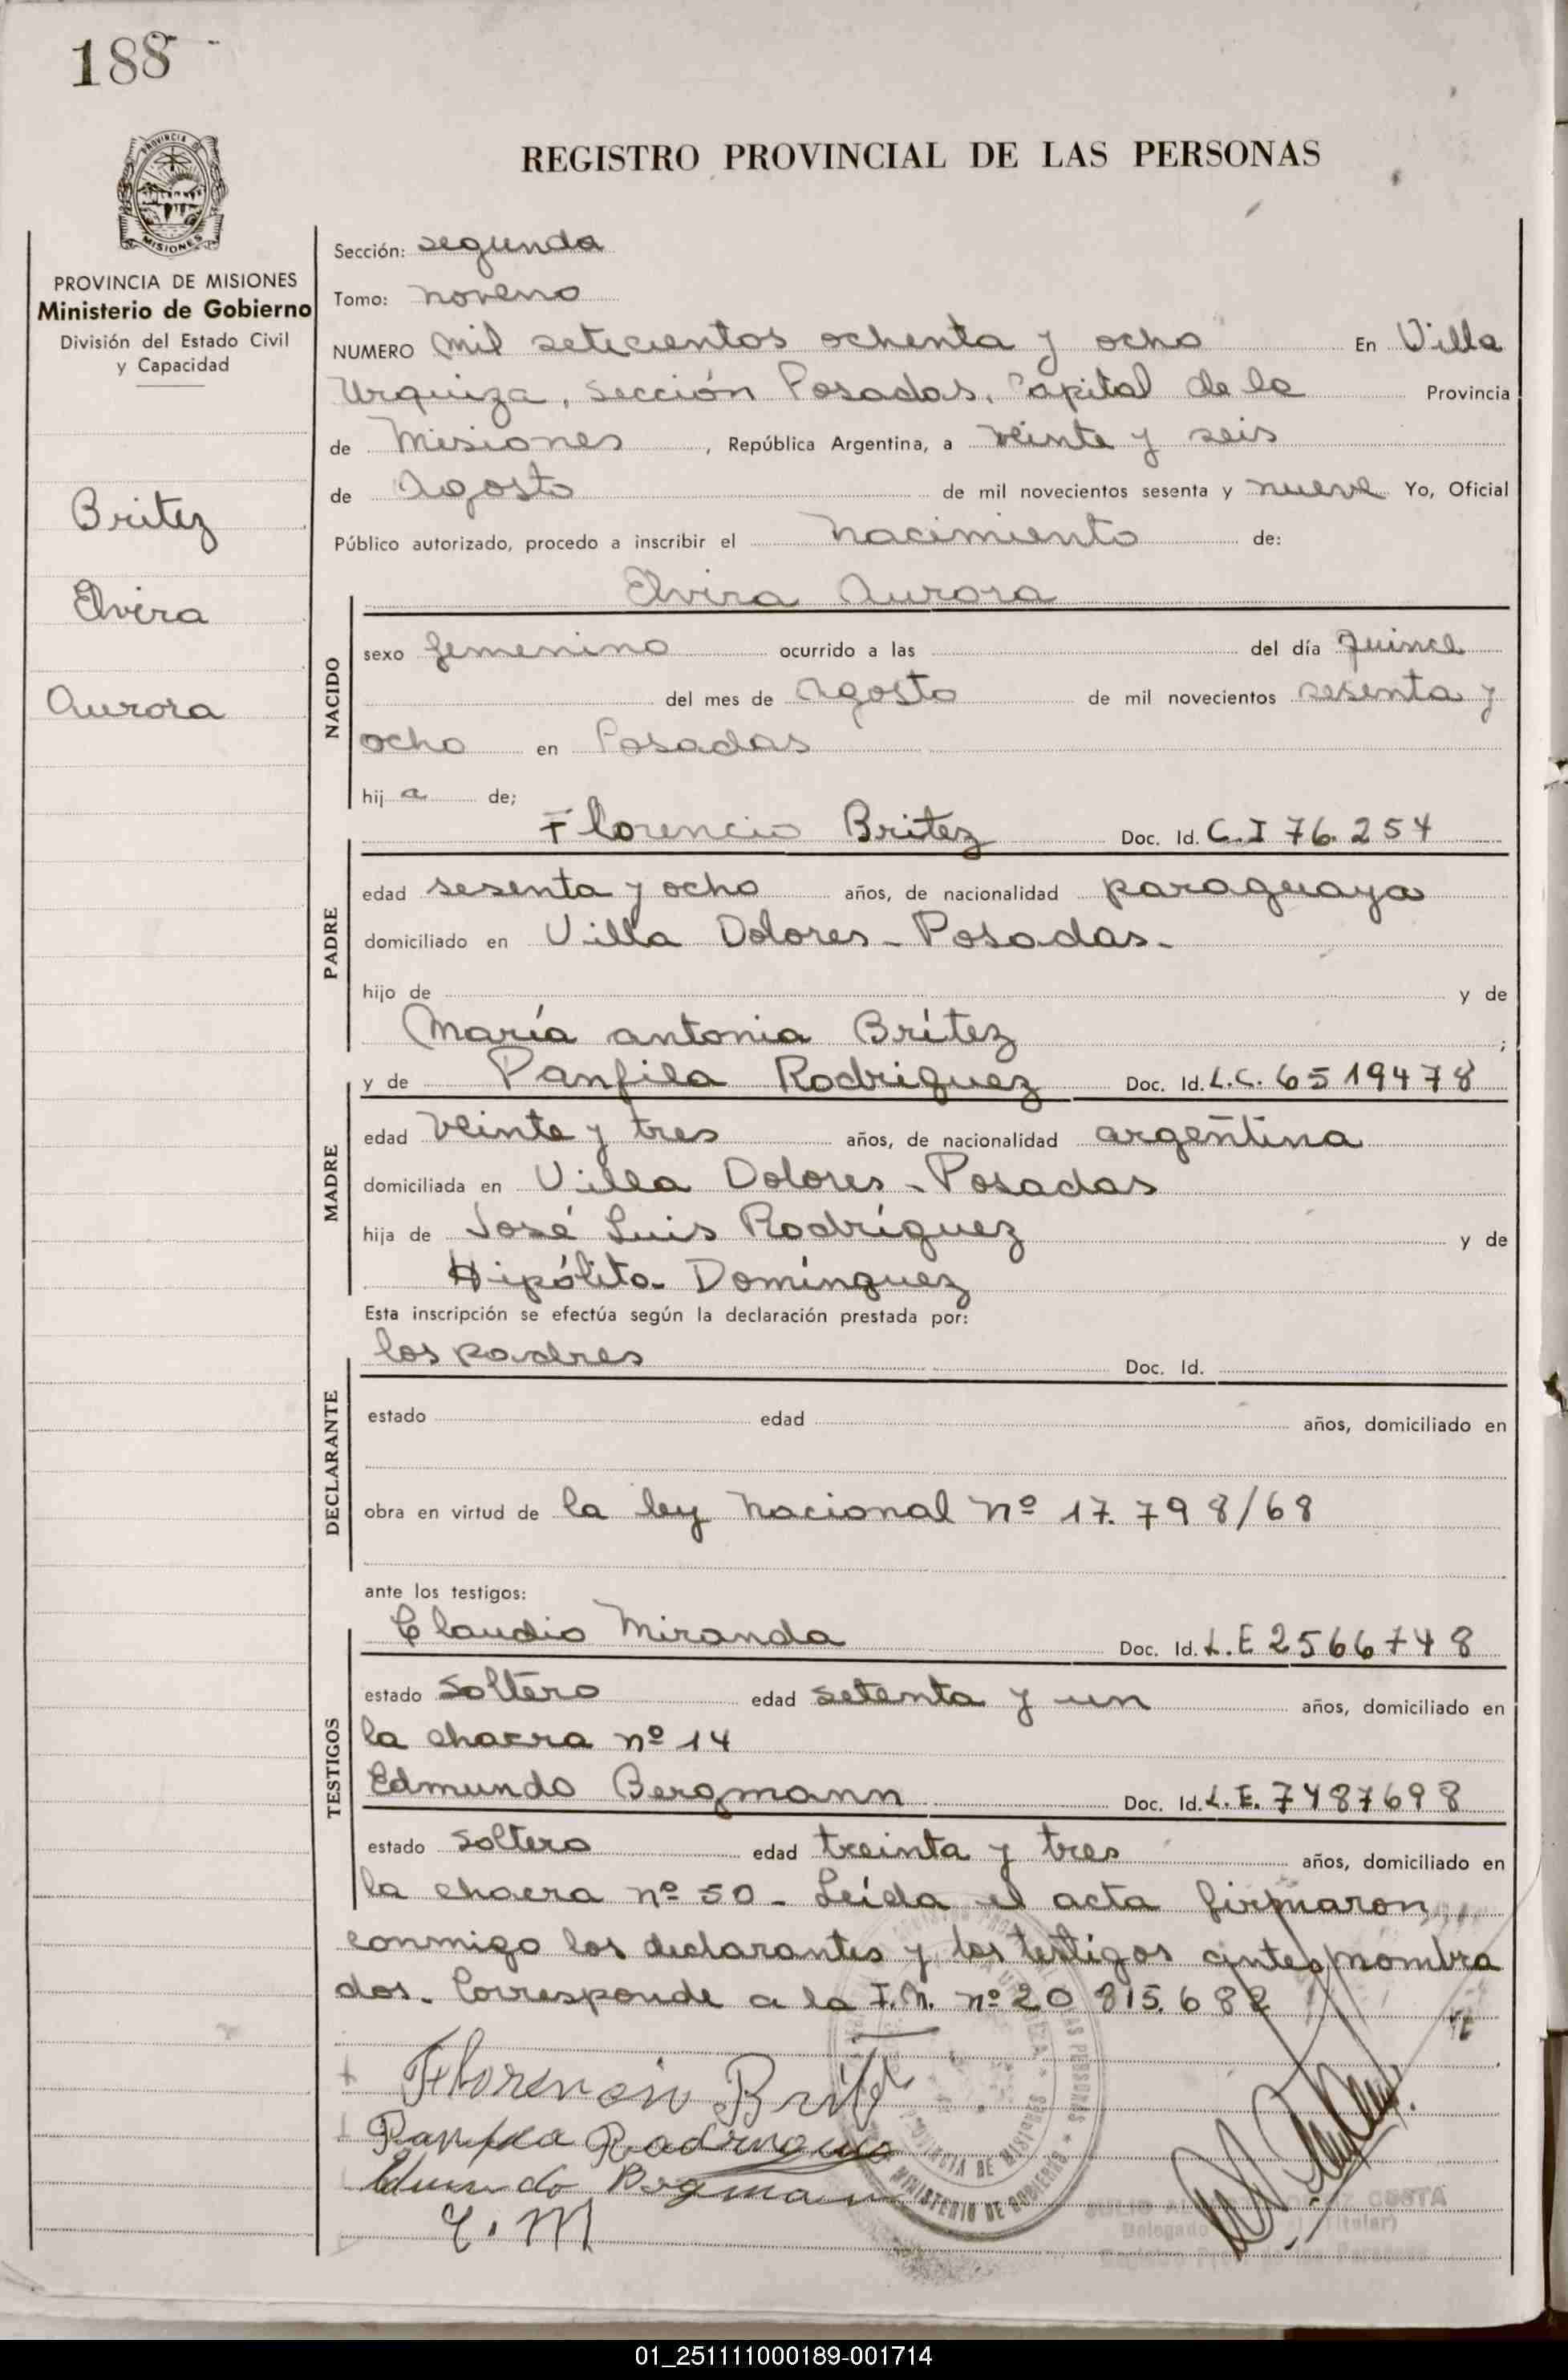 188
PROVINCIA DE
MISIONES
PROVINCIA DE MISIONES
Ministerio de Gobierno
División del Estado Civil
y Capacidad
Britez
Elvira
Aurora
REGISTRO PROVINCIAL DE LAS PERSONAS
Sección: segunda
Tomo: noveno
NUMERO mil setecientos ochenta y ocho En Villa
Urquiza, Sección Posadas, Capital de la Provincia
de Misiones, República Argentina, a veinte y seis
de Agosto de mil novecientos sesenta y nueve Yo, Oficial
Público autorizado, procedo a inscribir el nacimiento de:
Elvira Aurora
NACIDO
sexo femenino ocurrido a las del día quince
del mes de Agosto de mil novecientos sesenta y
ocho en Posadas
hij a de;
Florencio Britez Doc. Id. C.I 76.254
PADRE
edad sesenta y ocho años, de nacionalidad paraguaya
domiciliado en Villa Dolores - Posadas.
hijo de y de
María antonia Brítez ;
y de Panfila Rodriguez Doc. Id. L.C. 6519478
MADRE
edad veinte y tres años, de nacionalidad argentina
domiciliada en Villa Dolores - Posadas
hija de José Luis Rodríguez y de
Hipólita Domínguez
Esta inscripción se efectúa según la declaración prestada por:
los padres Doc. Id.
DECLARANTE
estado edad años, domiciliado en
obra en virtud de la ley nacional nº 17.798/68
ante los testigos:
Claudio Miranda Doc. Id. L.E 2566748
TESTIGOS
estado soltero edad setenta y un años, domiciliado en
la chacra nº 14
Edmundo Bergmann Doc. Id. L.E. 7487698
estado soltero edad treinta y tres años, domiciliado en
la chacra nº 50 - Leída el acta firmaron
conmigo los declarantes y los testigos antes nombra
dos. Corresponde a la I.M. nº 20 815.682
Florencio Britez
Panfila Rodriguez
Edmundo Bergmann
C. M
PROVINCIA DE MISIONES
MINISTERIO DE GOBIERNO
COSTA
Delegado (Titular)
01_251111000189-001714